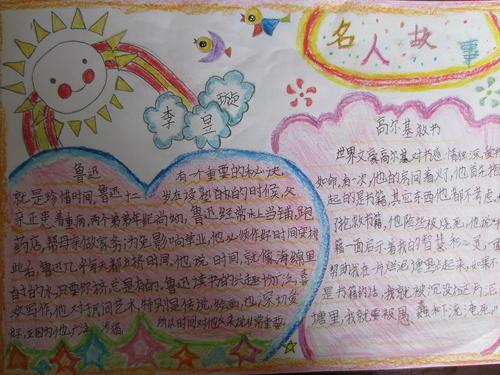 名人故事
李昱璇
鲁迅
有个重要的秘诀,
就是珍惜时间,鲁迅十二岁在读私塾的时候,父
亲正患着重病,两个弟弟年纪尚幼,鲁迅经常上当铺,跑
药店,帮母亲做家务;为免影响学业,他必须作好时间安排
此后,鲁迅几乎每天都在挤时间,他说:时间,就像海绵里
的水,只要你挤,总是有的,鲁迅读书的兴趣十分广泛,喜
欢写作,他对民间艺术,特别是传说、绘画,也深切爱
好,正因为他广泛
所以时间对他来说非常重要。
高尔基救书
世界文豪高尔基对书感情独深,爱书
如命,有一次,他的房间着火了,他首先抱
起的是书籍,其它东西他都不考虑,
了抢救书籍,他险些被烧死,他说:书
籍一面启示着我的智慧和心灵,一面
帮助我在一片烂泥塘里站起来,如果不
是书籍的话,我就被沉没在这片泥
塘里,我就要被愚蠢和下流淹死。